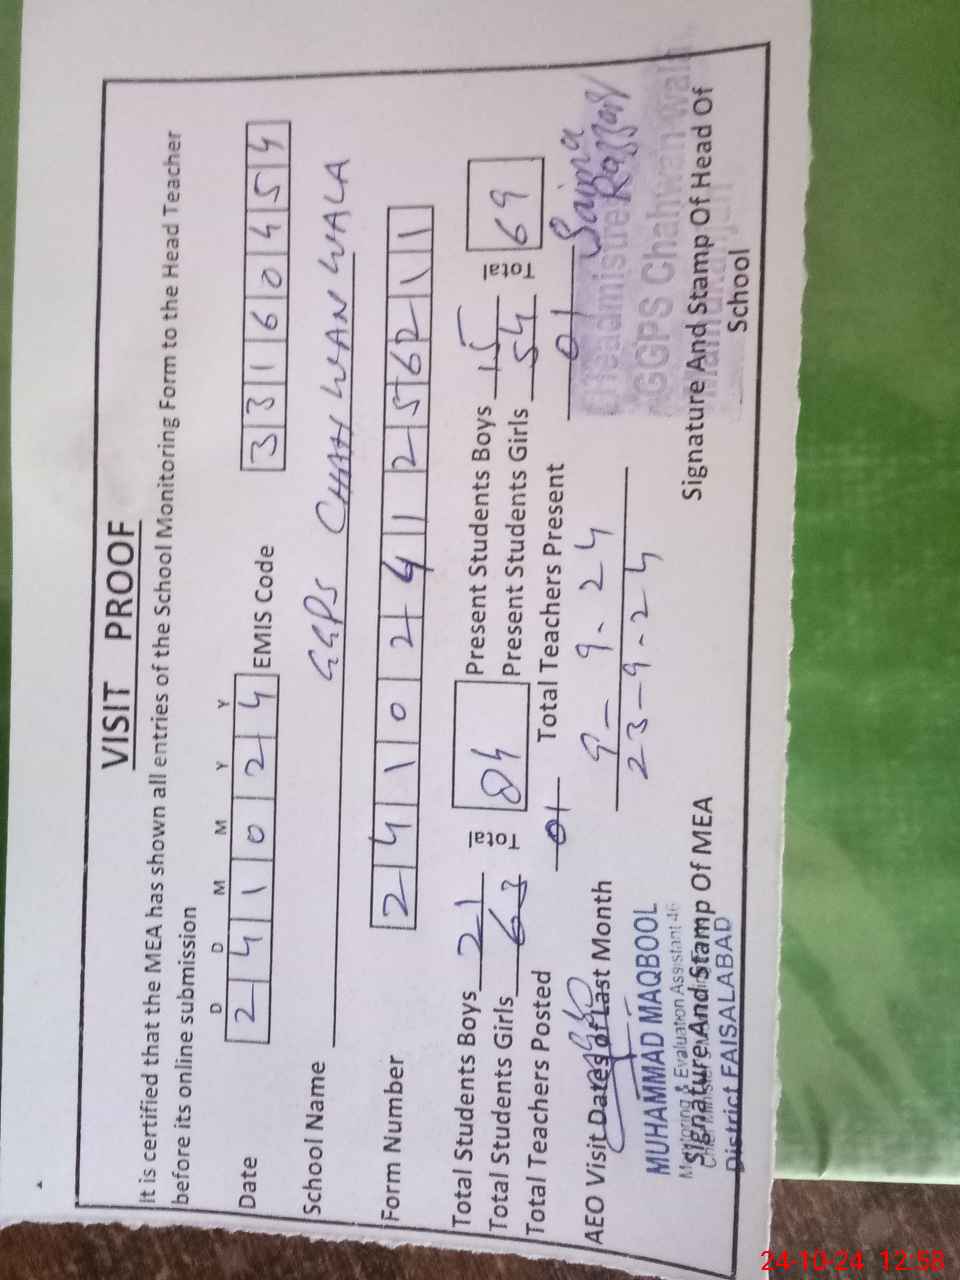 VISIT PROOF
It is certified that the MEA has shown all entries of the School Monitoring Form to the Head Teacher
before its online submission
D D M M Y Y
Date 2 4 1 0 2 4 EMIS Code 3 3 1 6 0 4 5 4
School Name GGPS CHAH WAN WALA
Form Number 2 4 1 0 2 4 1 2 5 6 2 1 1
Total Students Boys 21 Total 84 Present Students Boys 15 Total 69
Total Students Girls 63 Present Students Girls 54
Total Teachers Posted 01 Total Teachers Present 01
AEO Visit Dates of Last Month 9 - 9 - 24
23 - 9 - 24
Saima
Razzaq
Headmistress
GGPS Chahwan wala
MUHAMMAD MAQBOOL
Monitoring & Evaluation Assistant 46
Signature And Stamp Of MEA
District FAISALABAD
Signature And Stamp Of Head Of
School
24-10-24 12:58